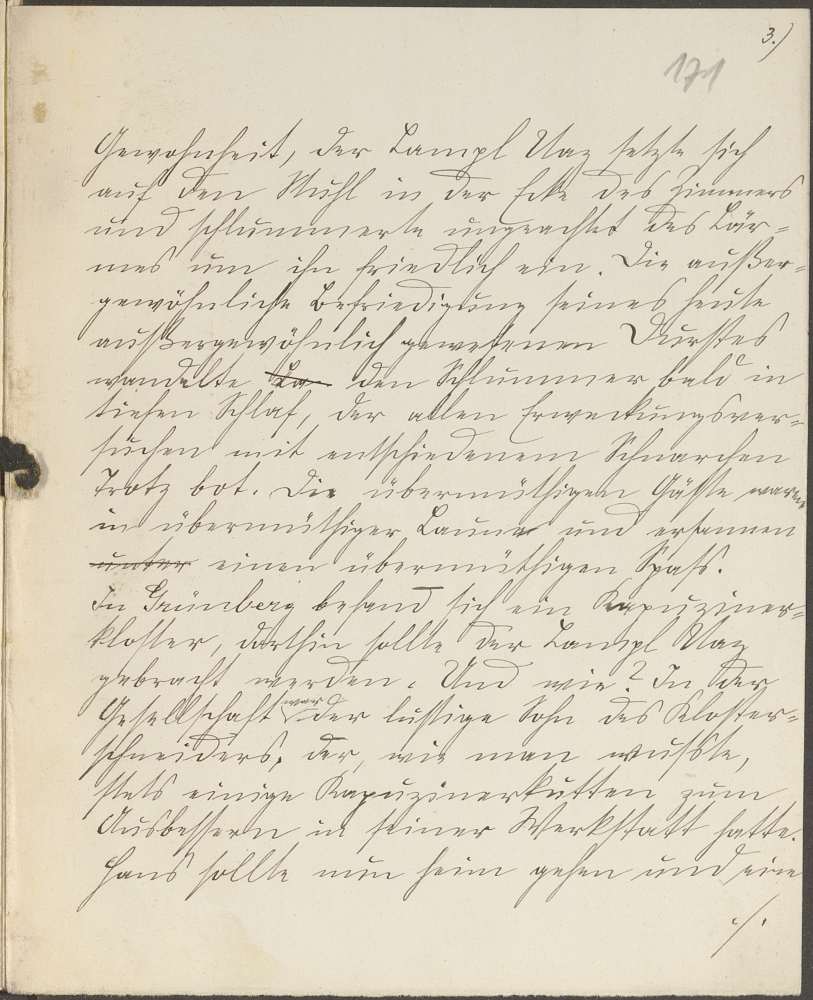 3.)
171
Gewohnheit, der Lampl Naz setzte sich
auf den Stuhl in der Ecke des Zimmers
und schlummerte ungeachtet des Lär-
mes um ihn friedlich ein. Die außer-
gewöhnliche Befriedigung seines heute
außergewöhnlich gewesenen Durstes
wandelte La den Schlummer bald in
tiefen Schlaf, der allen Erweckungsver-
suchen mit entschiedenem Schnarchen
Trotz bot. Die übermüthigen Gäste waren
in übermüthiger Laune und ersannen
unter einen übermüthigen Spaß.
In Grünberg befand sich ein Kapuziner-
kloster, dorthin sollte der Lampl Naz
gebracht werden. Und wie? In der
Gesellschaft war der lustige Sohn des Kloster-
schneiders, der, wie man wußte,
stets einige Kapuzinerkutten zum
Ausbessern in seiner Werkstatt hatte.
Hans sollte nun heim gehen und eine
./.